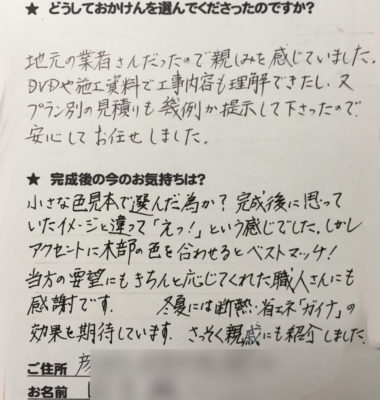 ★ どうしておかけんを選んでくださったのですか?
地元の業者さんだったので親しみを感じていました。
DVDや施工資料で工事内容も理解できたし、又
プラン別の見積りも幾例か提示して下さったので
安心してお任せしました。
★ 完成後の今のお気持ちは?
小さな色見本で選んだ為か?完成後に思って
いたイメージと違って「えっ!」という感じでした。しかし
アクセントに木部の色を合わせるとベストマッチ!
当方の要望にもきちんと応じてくれた職人さんにも
感謝です。 冬夏には断熱・省エネ「ガイナ」の
効果を期待しています。さっそく親戚にも紹介しました。
ご住所 彦
お名前